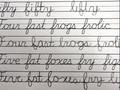 fifty fifty fifty
Four fast frogs frolic
Four fast frogs frolic
Five fat foxes fry
Five fat foxes fry